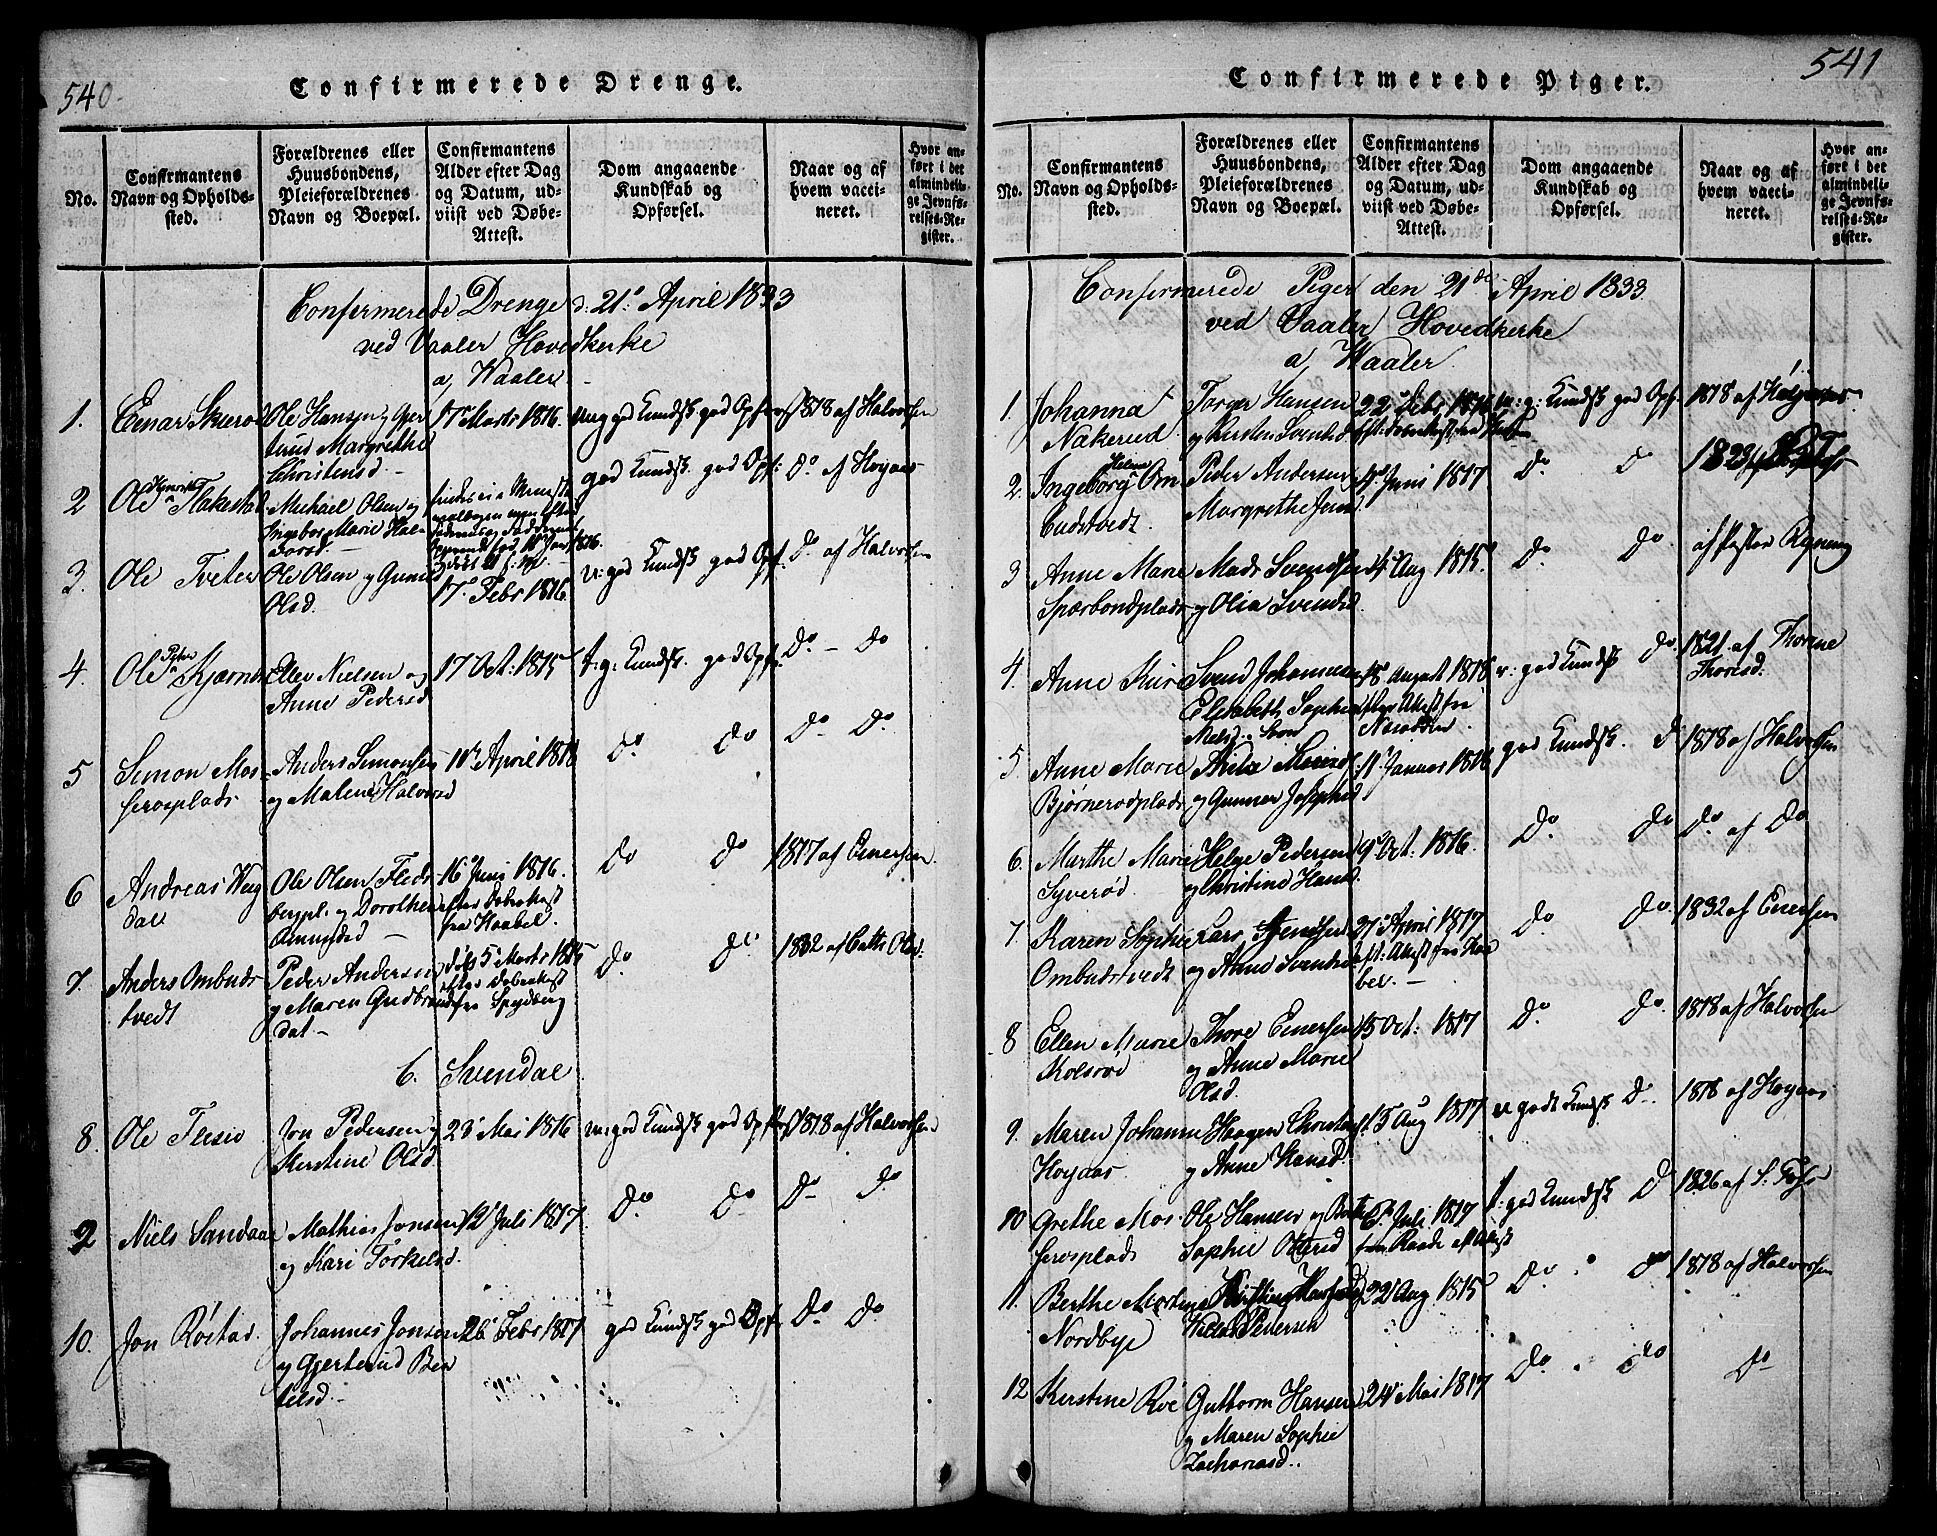 540.
Confirmerede Drenge.
No.
Confirmantens
Navn og Opholds-
sted.
Forældrenes eller
Huusbondens,
Pleieforældrenes
Navn og Boepæl.
Confirmantens
Alder efter Dag
og Datum, ud-
viist ved Døbe-
Attest.
Dom angaaende
Kundskab og
Opførsel.
Naar og af
hvem vacci-
neret.
Hvor an-
ført i det
almindeli-
ge Jevnfø-
relses-Re-
gister.
Confirmerede Drenge d. 21. April 1833
ved Vaaler Hovedkerke
a, Waaler
1.
Einar Skierød
Ole Hansen og Gjer
trud Margrethe
Christensd
17 Marts 1816
god Kundsk god Opførs
1818 af Halvorsen
2
Ole Henrik Flakestad
Michael Olsen og
Ingeborg Marie Hal
vorsd.
god Kundsk god Opf:
Do af Hoyaas
3.
Ole Tveter
Ole Olsen og Gunild
Olsd.
17 Febr 1816
v: god Kundsk god Opf.
Do af Halvorsen
4.
Ole Peter Kjærnes
Ellev Nielsen og
Anne Pedersd
17 Oct: 1815
t: g: Kundsk. god Opf.
Do - Do
5
Simon Mos
serosplads
Anders Simonsen
og Malene Halvorsd
11 April 1818
Do Do
Do Do
6
Andreas Vog
dal
Ole Olsen Fleds
bergpl. og Dorothea
Amundsd
16 Juni 1816.
efter Døbeattest
fra Haabel.
Do Do
1817 af Enersen
7.
Anders Ombuds
tvedt
Peder Andersen
og Maren Gudbrands
dat
født 5 Marts 1815
efter Døbeattest
fra Spydberg
Do. Do
1832 af Cathr Olsd:
b. Svendal
8.
Ole Flesio
Jon Pedersen og
Kerstine Olsd
23 Mai 1816
m: god Kundsk god Opførs
1818 af Halvorsen
9
Niels Sandaae
Mathias Jonsen
og Kari Torkelsd.
12 Juli 1817
Do Do
Do Do
10.
Jon Röstad.
Johannes Jonsen
og Gjertrud Ber
telsd.
26 Febr 1817
god Kundsk god Opf.
Do Do
541
Confirmerede Piger.
No.
Confirmantens
Navn og Opholds-
sted.
Forældrenes eller
Huusbondens,
Pleieforældrenes
Navn og Boepæl.
Confirmantens
Alder efter Dag
og Datum, ud-
viist ved Døbe-
Attest.
Dom angaaende
Kundskab og
Opførsel.
Naar og af
hvem vacci-
neret.
Hvor an-
ført i det
almindeli-
ge Jevnfø-
relses-Re-
gister.
Confirmerede Piger den 21de April 1833
ved Vaaler Hovedkerke
a, Waaler
1.
Johanna
Nækerud
Torger Hansen
og Kirsten Svends
22 Febr 1816
m: g: Kundsk god Opf.
1818 af
2.
Ingeborg Helene Om
budstvedt.
Peder Andersen
Margrethe Jensd
Juni 1817
Do. Do
182
3
Anne Marie
Spærbondplads
Mads Svendsen
og Olia Svendsd.
Aug 1815
Do. Do
af Pastor Ryning
4.
Anne Kure
Svend Johannesen
Elisabeth Sophie
Nielsd. Son
18 August 1818
efter Attest fra
Nesodden.
v: god Kundsk Do.
1821. af Thorine
Thoresd.
5.
Anne Marie
Bjørnerødplads
og Gunner Josephsd
11 Januar 1816
god Kundsk. Do
1818 af Halvorsen
6.
Marthe Marie
Syverød
Helge Pedersen
og Christine Hansd.
9 Oct: 1816.
Do. Do
Do af Do
7.
Karen Sophie
Ombudstvedt
Lars Svendsen
og Anne Svends
27 April 1817
eft: Attest fra Haa
bel.
Do. Do.
1832 af Enersen
8
Ellen Marie
Kolsrød
Thore Enersen
og Anne Marie
Olsd.
15 Oct: 1817
Do. Do.
1818 af Halvorsen
9.
Maren Johanne
Hoyaas
Haagen Christens
og Anne Hansd.
15 Aug 1817
v godt Kundsk Do.
1818 af Hoyaas
10
Grethe Mos
serosplads
Ole Hansen og Berthe
Sophie Ottersd
6 Juli 1817
fra Raade eft Attest
t: god Kundsk Do
1826 af S. Foss
11.
Berthe Martine
Nordbye
Niels Pedersen
22 Aug 1815
Do. Do
1818 af Halvorsen
12
Kerstine Röe
Guttorm Hansen
og Maren Sophie
Zachariasd.
24 Mai 1817
Do Do
Do